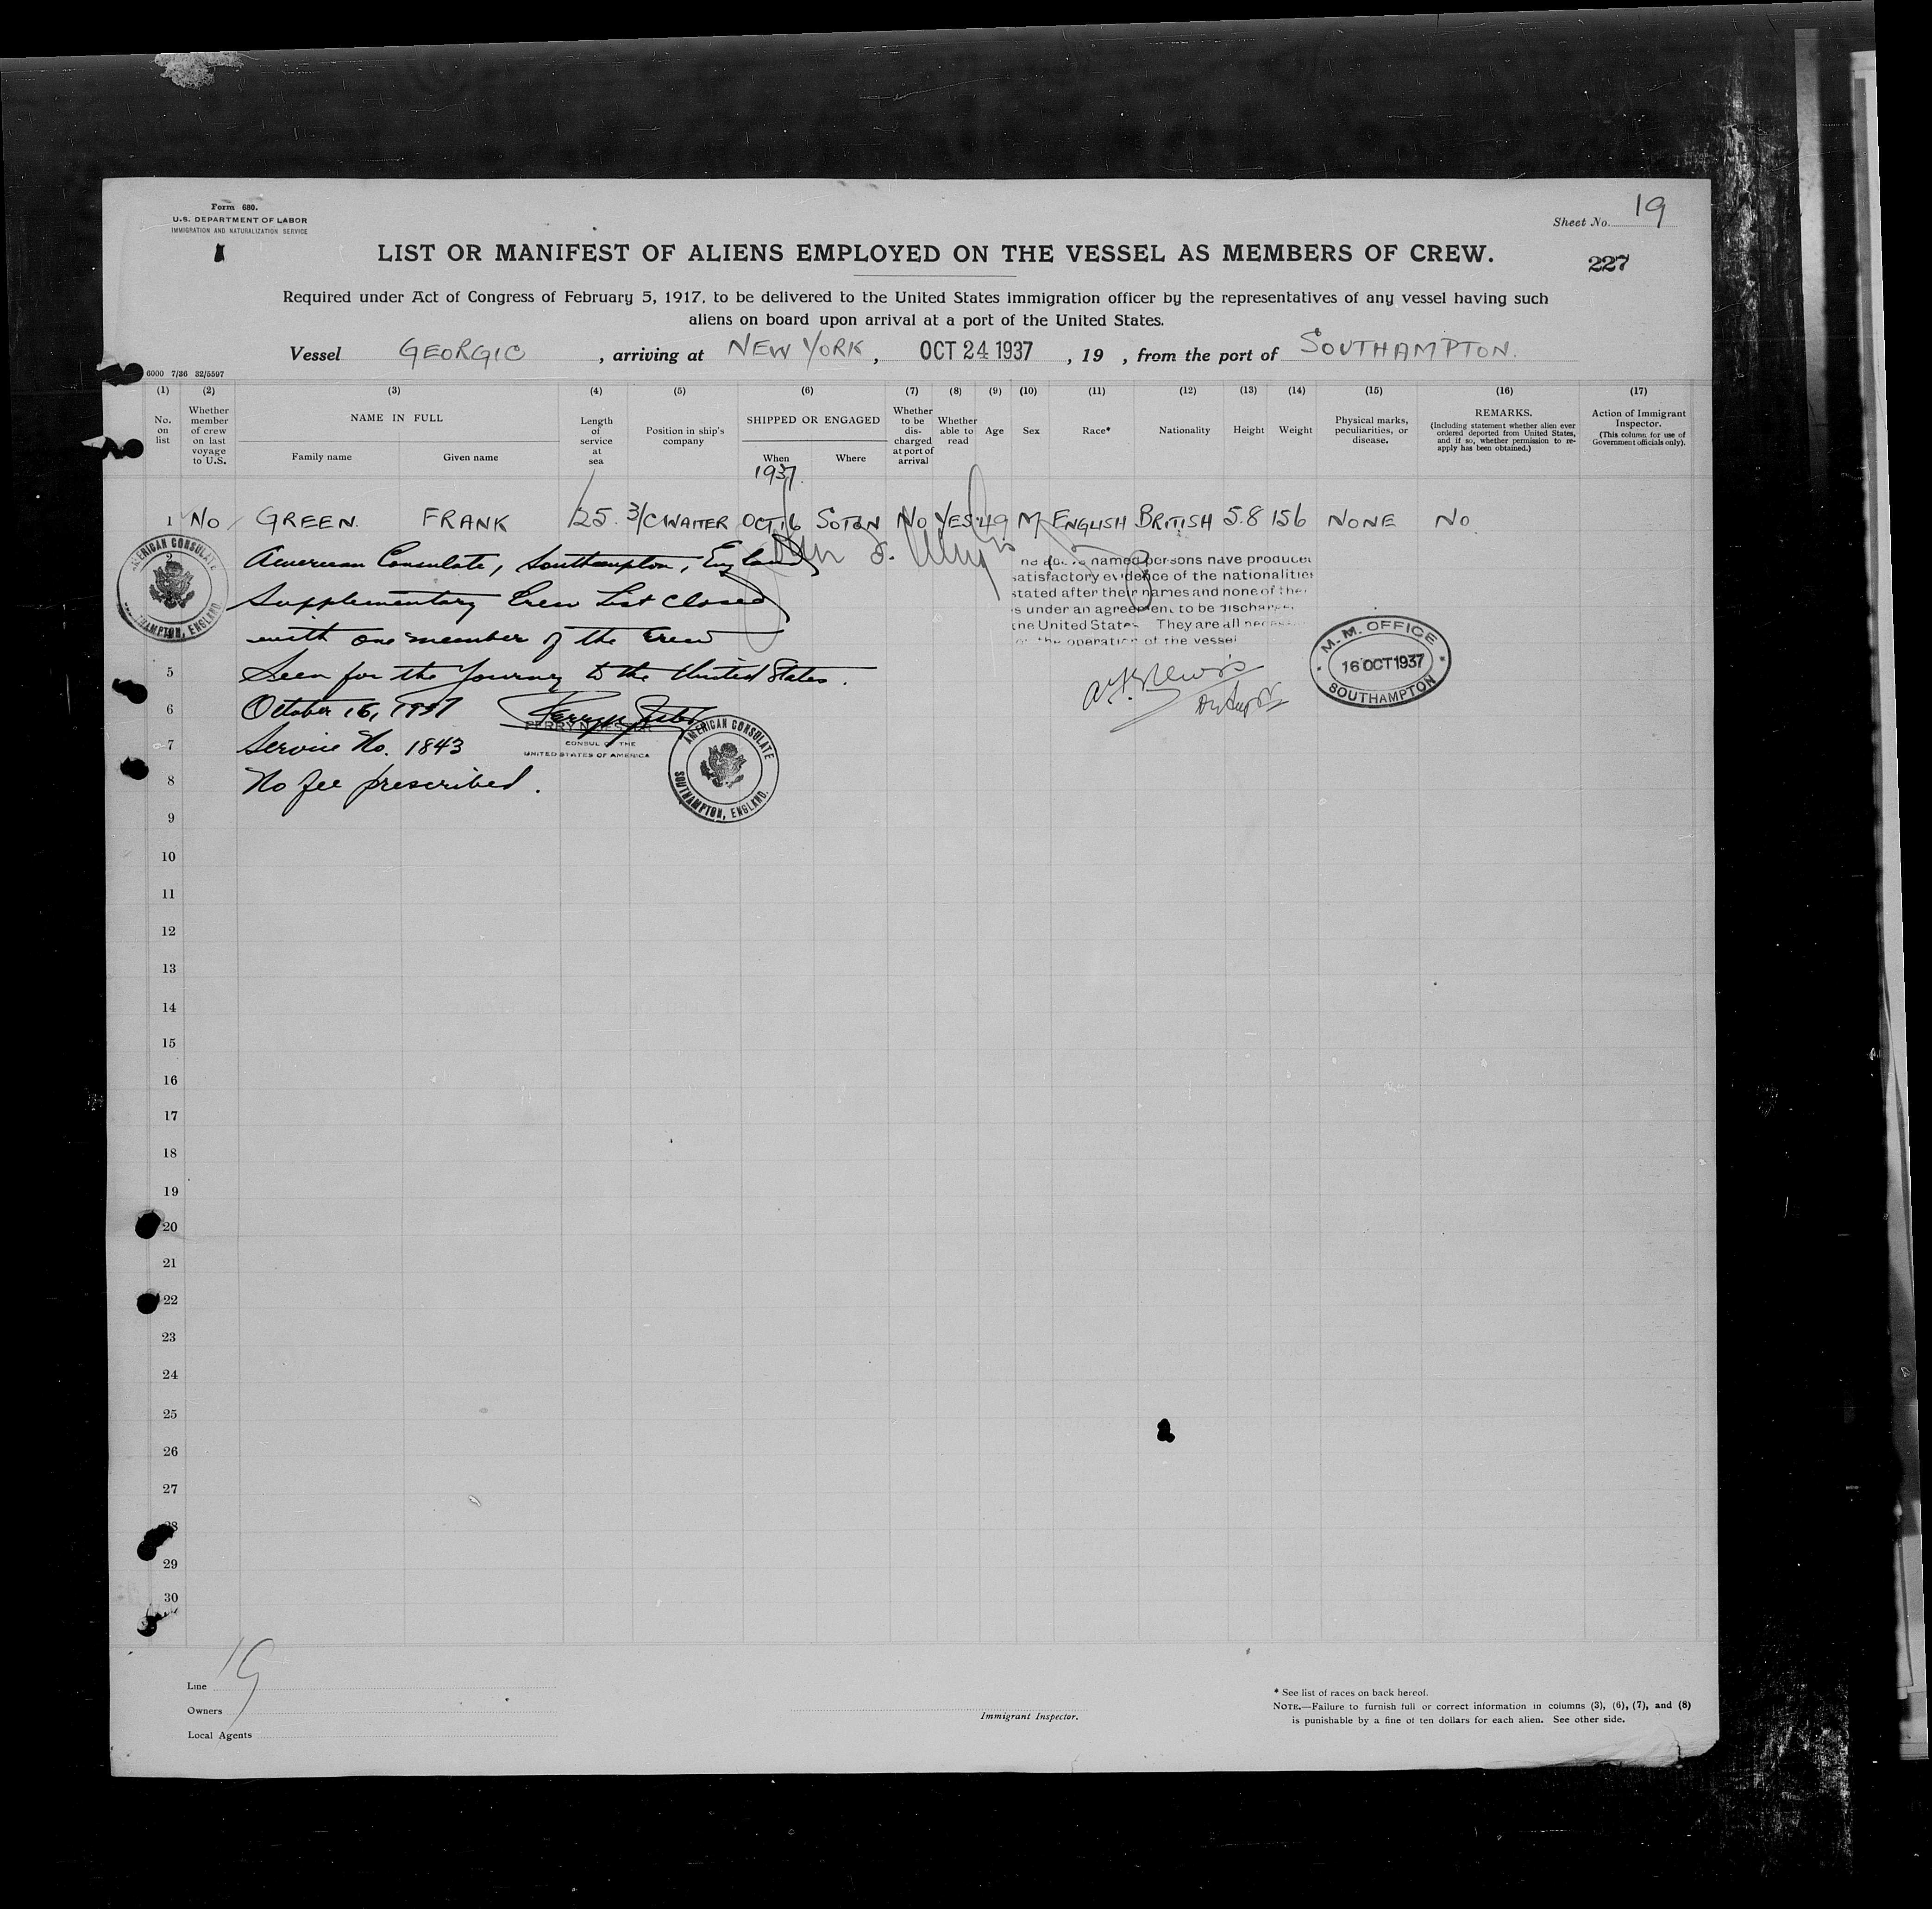 Form 680.
U.S. DEPARTMENT OF LABOR
IMMIGRATION AND NATURALIZATION SERVICE
Sheet No. 19
LIST OR MANIFEST OF ALIENS EMPLOYED ON THE VESSEL AS MEMBERS OF CREW.
227
Required under Act of Congress of February 5, 1917, to be delivered to the United States immigration officer by the representatives of any vessel having such
aliens on board upon arrival at a port of the United States.
Vessel GEORGIC, arriving at NEW YORK, OCT 24 1937, 19 , from the port of SOUTHAMPTON.
6000 7/36 32/5597
(1) (2) (3) (4) (5) (6) (7) (8) (9) (10) (11) (12) (13) (14) (15) (16) (17)
No. on list
Whether member of crew on last voyage to U.S.
NAME IN FULL
Family name Given name
Length of service at sea
Position in ship's company
SHIPPED OR ENGAGED
When Where
1937.
Whether to be discharged at port of arrival
Whether able to read
Age
Sex
Race*
Nationality
Height
Weight
Physical marks, peculiarities, or disease.
REMARKS.
(Including statement whether alien ever ordered deported from United States, and if so, whether permission to re-apply has been obtained.)
Action of Immigrant Inspector.
(This column for use of Government officials only).
1 NO GREEN. FRANK 25. 3/C WAITER OCT 16 SOTON NO YES 49 M ENGLISH BRITISH 5.8 156 NONE NO
AMERICAN CONSULATE
SOUTHAMPTON, ENGLAND
2
American Consulate, Southampton, England
Supplementary Crew List closed
with one member of the crew
5 Seen for the journey to the United States.
6 October 16, 1937
7 Service No. 1843
8 No fee prescribed.
CONSUL OF THE
UNITED STATES OF AMERICA
AMERICAN CONSULATE
SOUTHAMPTON, ENGLAND.
named persons have produced
satisfactory evidence of the nationalities
stated after their names and none of the
s under an agreement to be discharge
the United States They are all
the operation of the vessel
M. M. OFFICE
16 OCT 1937
SOUTHAMPTON
9
10
11
12
13
14
15
16
17
18
19
20
21
22
23
24
25
26
27
28
29
30
19
Line
Owners
Local Agents
Immigrant Inspector.
* See list of races on back hereof.
NOTE.—Failure to furnish full or correct information in columns (3), (6), (7), and (8)
is punishable by a fine of ten dollars for each alien. See other side.